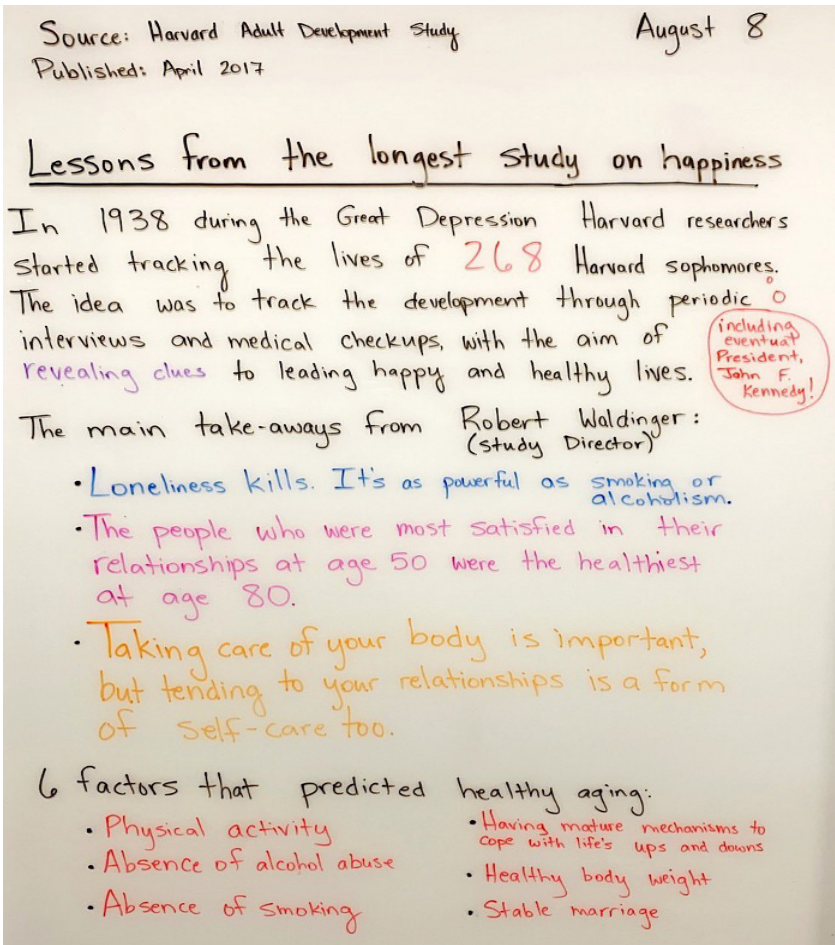 Source: Harvard Adult Development Study
August 8
Published: April 2017
Lessons from the longest study on happiness
In 1938 during the Great Depression Harvard researchers
started tracking the lives of 268 Harvard sophomores.
The idea was to track the development through periodic
interviews and medical checkups, with the aim of
revealing clues to leading happy and healthy lives.
including
eventual
President,
John F.
Kennedy!
The main take-aways from Robert Waldinger:
(Study Director)
• Loneliness kills. It's as powerful as smoking or
alcoholism.
• The people who were most satisfied in their
relationships at age 50 were the healthiest
at age 80.
• Taking care of your body is important,
but tending to your relationships is a form
of self-care too.
6 factors that predicted healthy aging:
• Physical activity
• Absence of alcohol abuse
• Absence of smoking
• Having mature mechanisms to
cope with life's ups and downs
• Healthy body weight
• Stable marriage